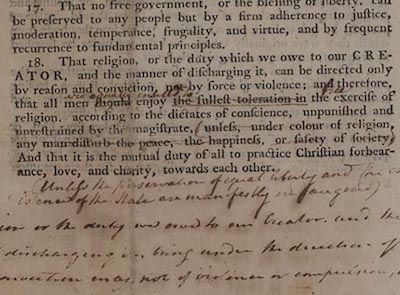 17. That no free government, or the blessing of liberty, can
be preserved to any people but by a firm adherence to justice,
moderation, temperance, frugality, and virtue, and by frequent
recurrence to fundamental principles.
18. That religion, or the duty which we owe to our CRE-
ATOR, and the manner of discharging it, can be directed only
by reason and conviction, not by force or violence; and therefore,
that all men should enjoy the fullest toleration in the exercise of
religion, according to the dictates of conscience, unpunished and
unrestrained by the magistrate, (unless, under colour of religion,
any man disturb the peace, the happiness, or safety of society)
And that it is the mutual duty of all to practice Christian forbear-
ance, love, and charity, towards each other.
(Unless the preservation of equal liberty and the
of the State are manifestly
or the duty we owe to our Creator, and the
discharging it, being under the direction of
conviction only, not of violence or compulsion,